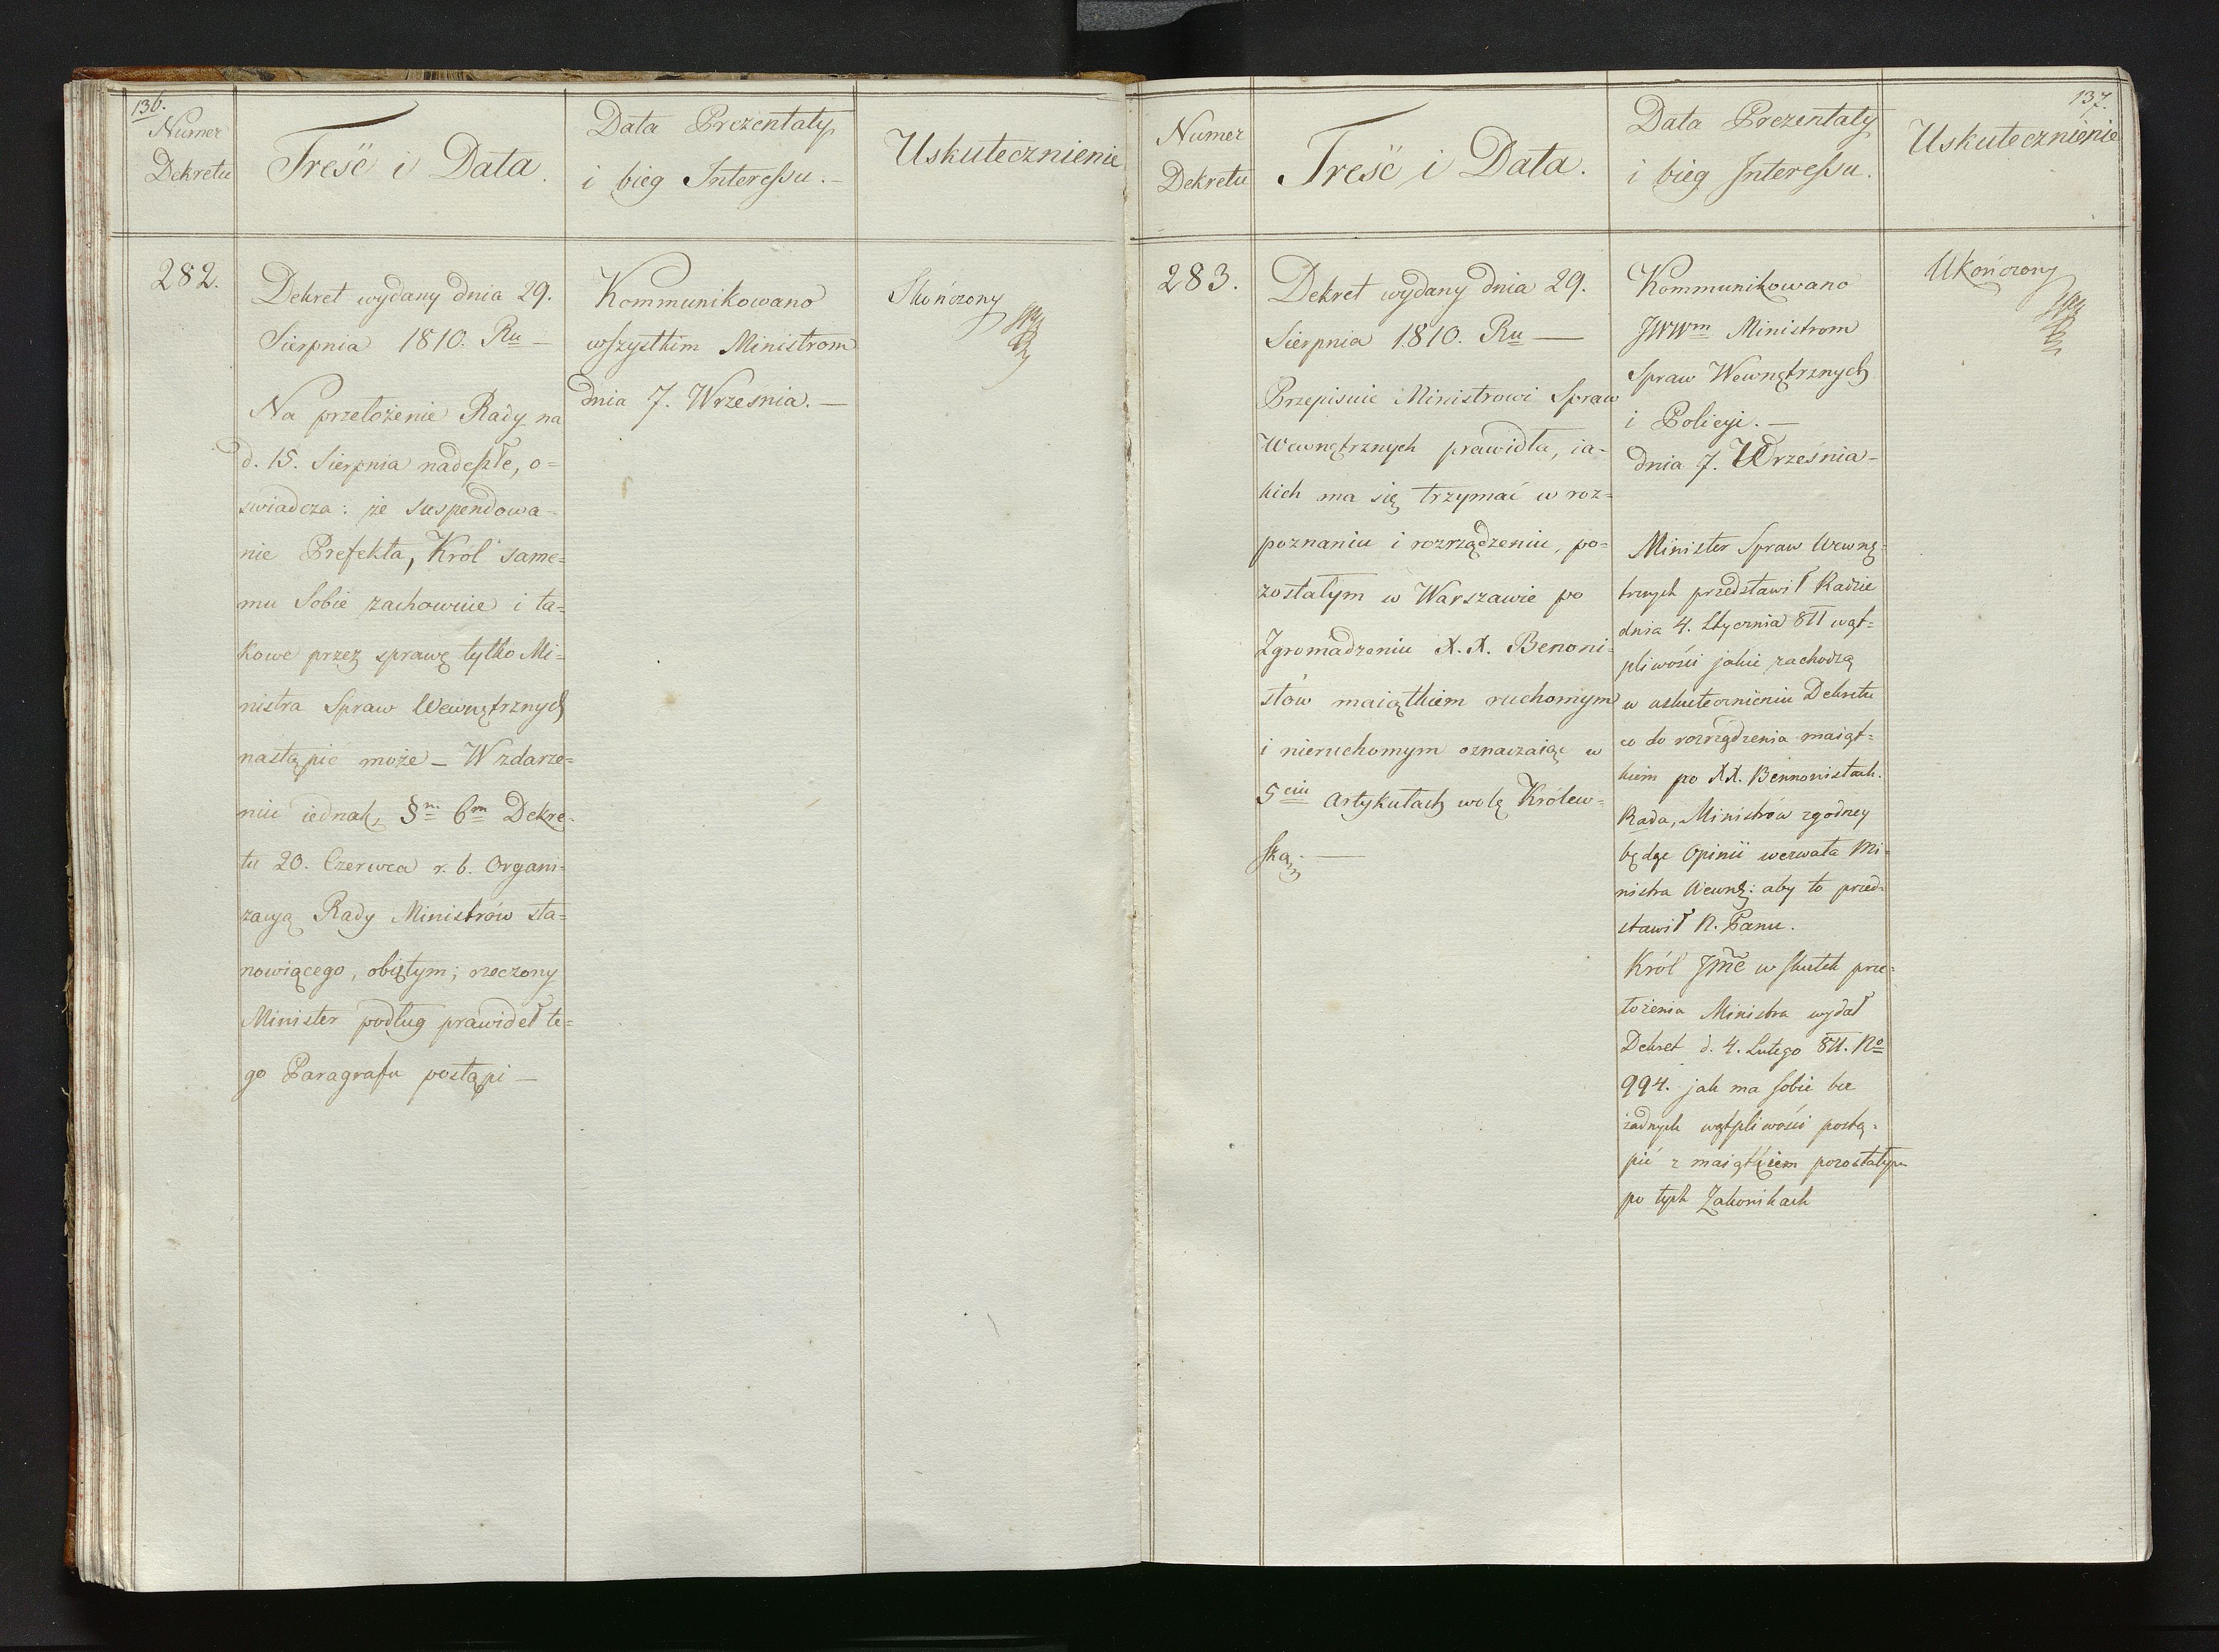 136.
Numer
Dekretu
Treść i Data.
Data Prezentaty
i bieg Interessu. —
Uskutecznienie
282.
Dekret wydany dnia 29.
Sierpnia 1810. Ru —
Na przełożenie Rady na
d. 15. Sierpnia nadeszłe, o=
swiadcza: że suspendowa=
nie Prefekta, Król same=
mu Sobie zachowuie i ta=
kowe przez sprawę tylko Mi=
nistra Spraw Wewnętrznych
nastąpić może — W zdarze=
niu iednak, §m 6m Dekre=
tu 20. Czerwca r. b. Organi=
zacyą Rady Ministrów sta=
nowiącego, obiętym; rzeczony
Minister podług prawideł te=
go Paragrafu postąpi —
Kommunikowano
wszystkim Ministrom
dnia 7. Września. —
Skończony
137.
Numer
Dekretu
Treść i Data.
Data Prezentaty
i bieg Interessu.
Uskutecznienie
283.
Dekret wydany dnia 29.
Sierpnia 1810. Ru —
Przepisuie Ministrowi Spraw
Wewnętrznych prawidła, ia=
kich ma się trzymać w roz=
poznaniu i rozrządzeniu, po=
zostałym w Warszawie po
Zgromadzeniu X. X. Benoni=
stów maiątkiem ruchomym
i nieruchomym oznaczaiąc w
5ciu artykułach wolę Królew=
ską. —
Kommunikowano
JWWm Ministrom
Spraw Wewnętrznych
i Policyi. —
dnia 7. Września —
Minister Spraw Wewnę=
trznych przedstawił Radzie
dnia 4. Stycznia 811 wąt=
pliwości jakie zachodzą
w uskutecznieniu Dekretu
co do rozrządzenia maiąt=
kiem po XX. Bennonistach.
Rada, Ministrów zgodney
będąc Opinii wezwała Mi=
nistra Wewnę: aby to przed=
stawił N. Panu.
Król Jmć w skutek prze=
łożenia Ministra wydał
Dekret d. 4. Lutego 811. No
994. jak ma sobie bez
żadnych wątpliwości postą=
pić z maiątkiem pozostałym
po tych Zakonikach
Ukończony